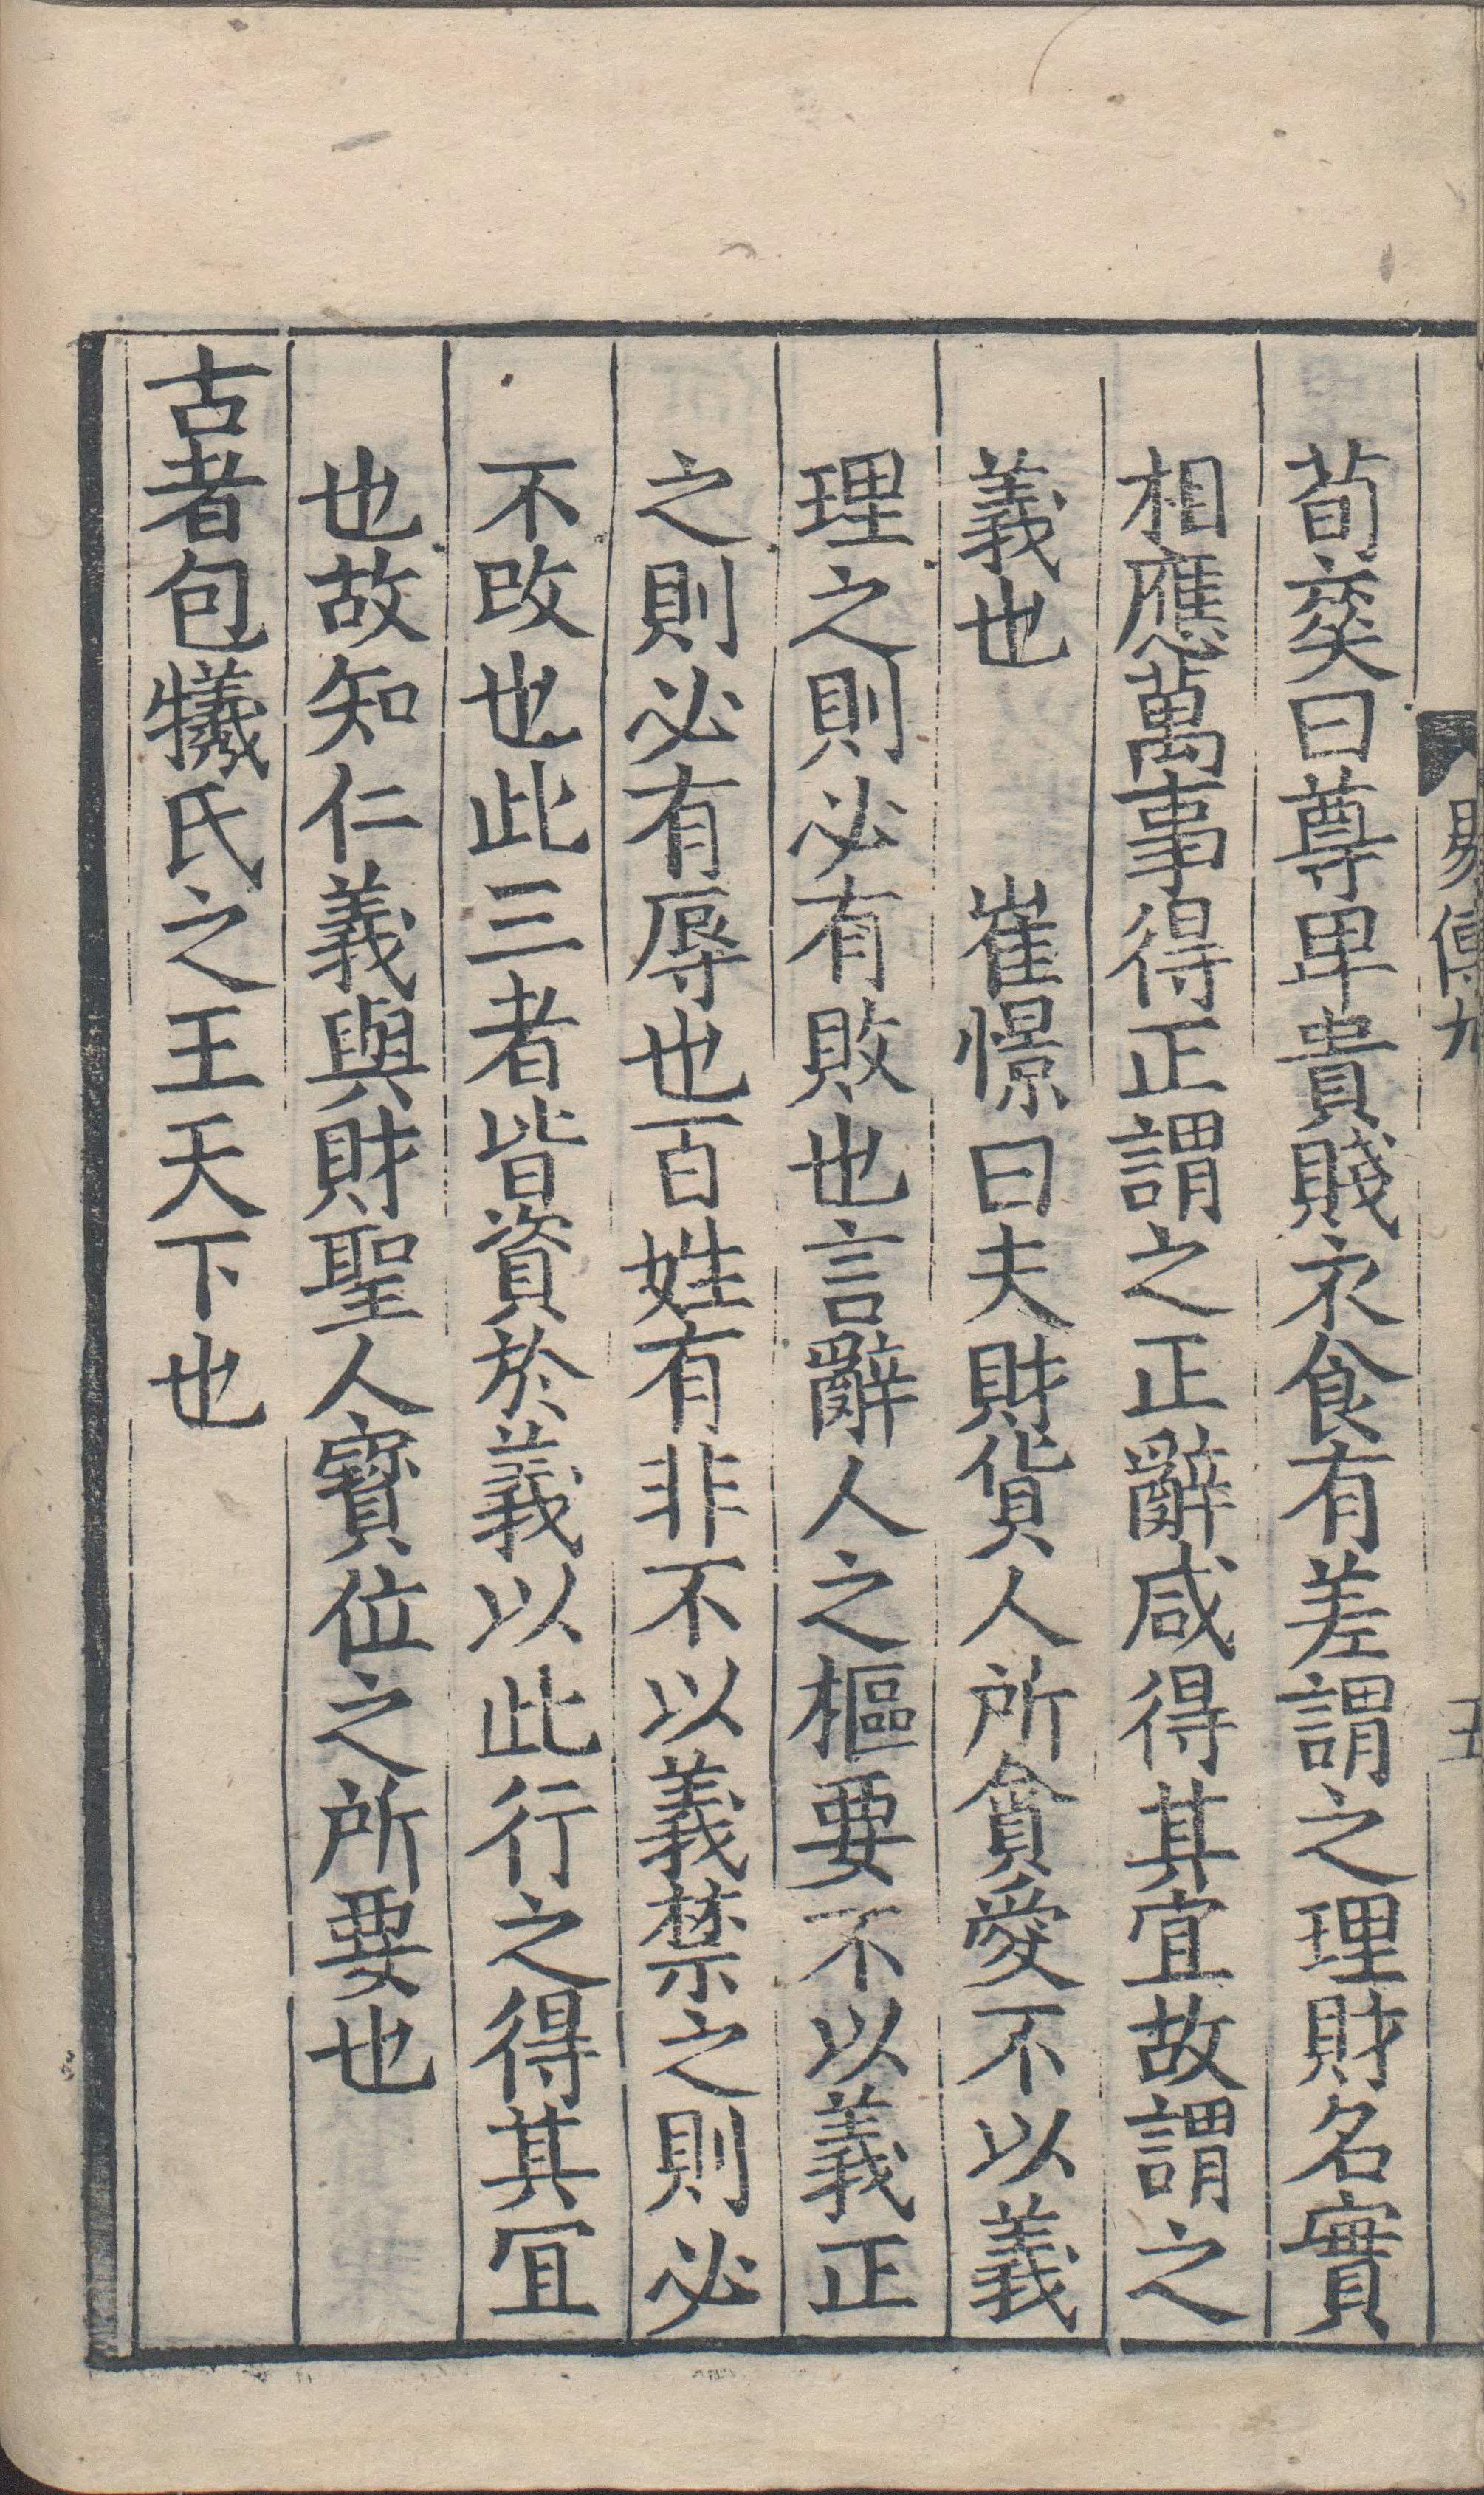 易傳九
五
荀爽曰尊卑貴賤衣食有差謂之理財名實
相應萬事得正謂之正辭咸得其宜故謂之
義也 崔憬曰夫財貨人所貪愛不以義
理之則必有敗也言辭人之樞要不以義正
之則必有辱也百姓有非不以義禁之則必
不改也此三者皆資於義以此行之得其宜
也故知仁義與財聖人寶位之所要也
古者包犧氏之王天下也